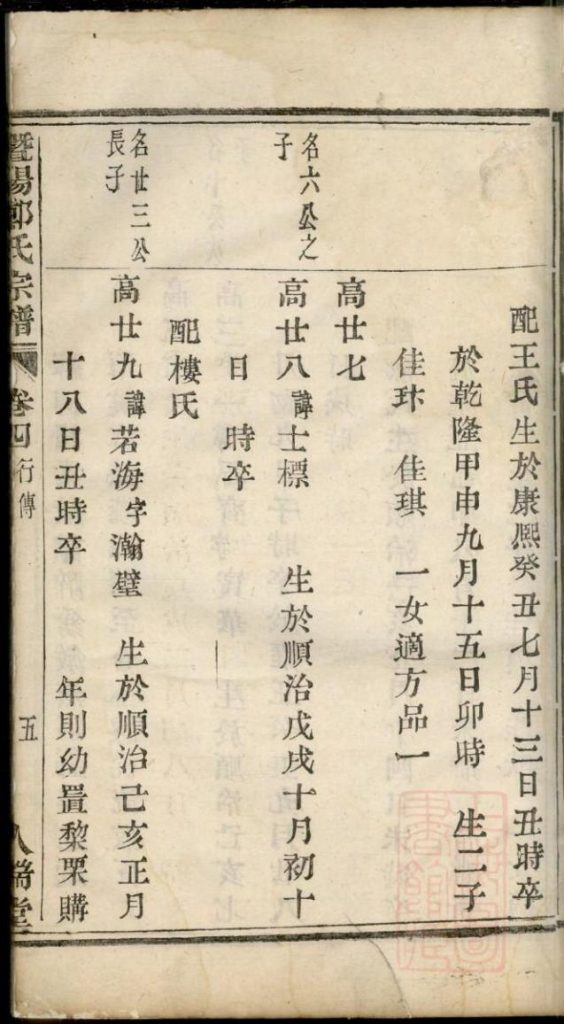 配王氏生於康熙癸丑七月十三日丑時卒
於乾隆甲申九月十五日卯時 生二子
佳玝 佳琪 一女適方品一
高廿七
名六公之
子
高廿八諱士標 生於順治戊戌十月初十
日 時卒
配樓氏
名廿三公
長子
高廿九諱若海字瀚璧 生於順治己亥正月
十八日丑時卒 年則幼置黎栗購
暨陽郭氏宗譜 卷四 行傳 五